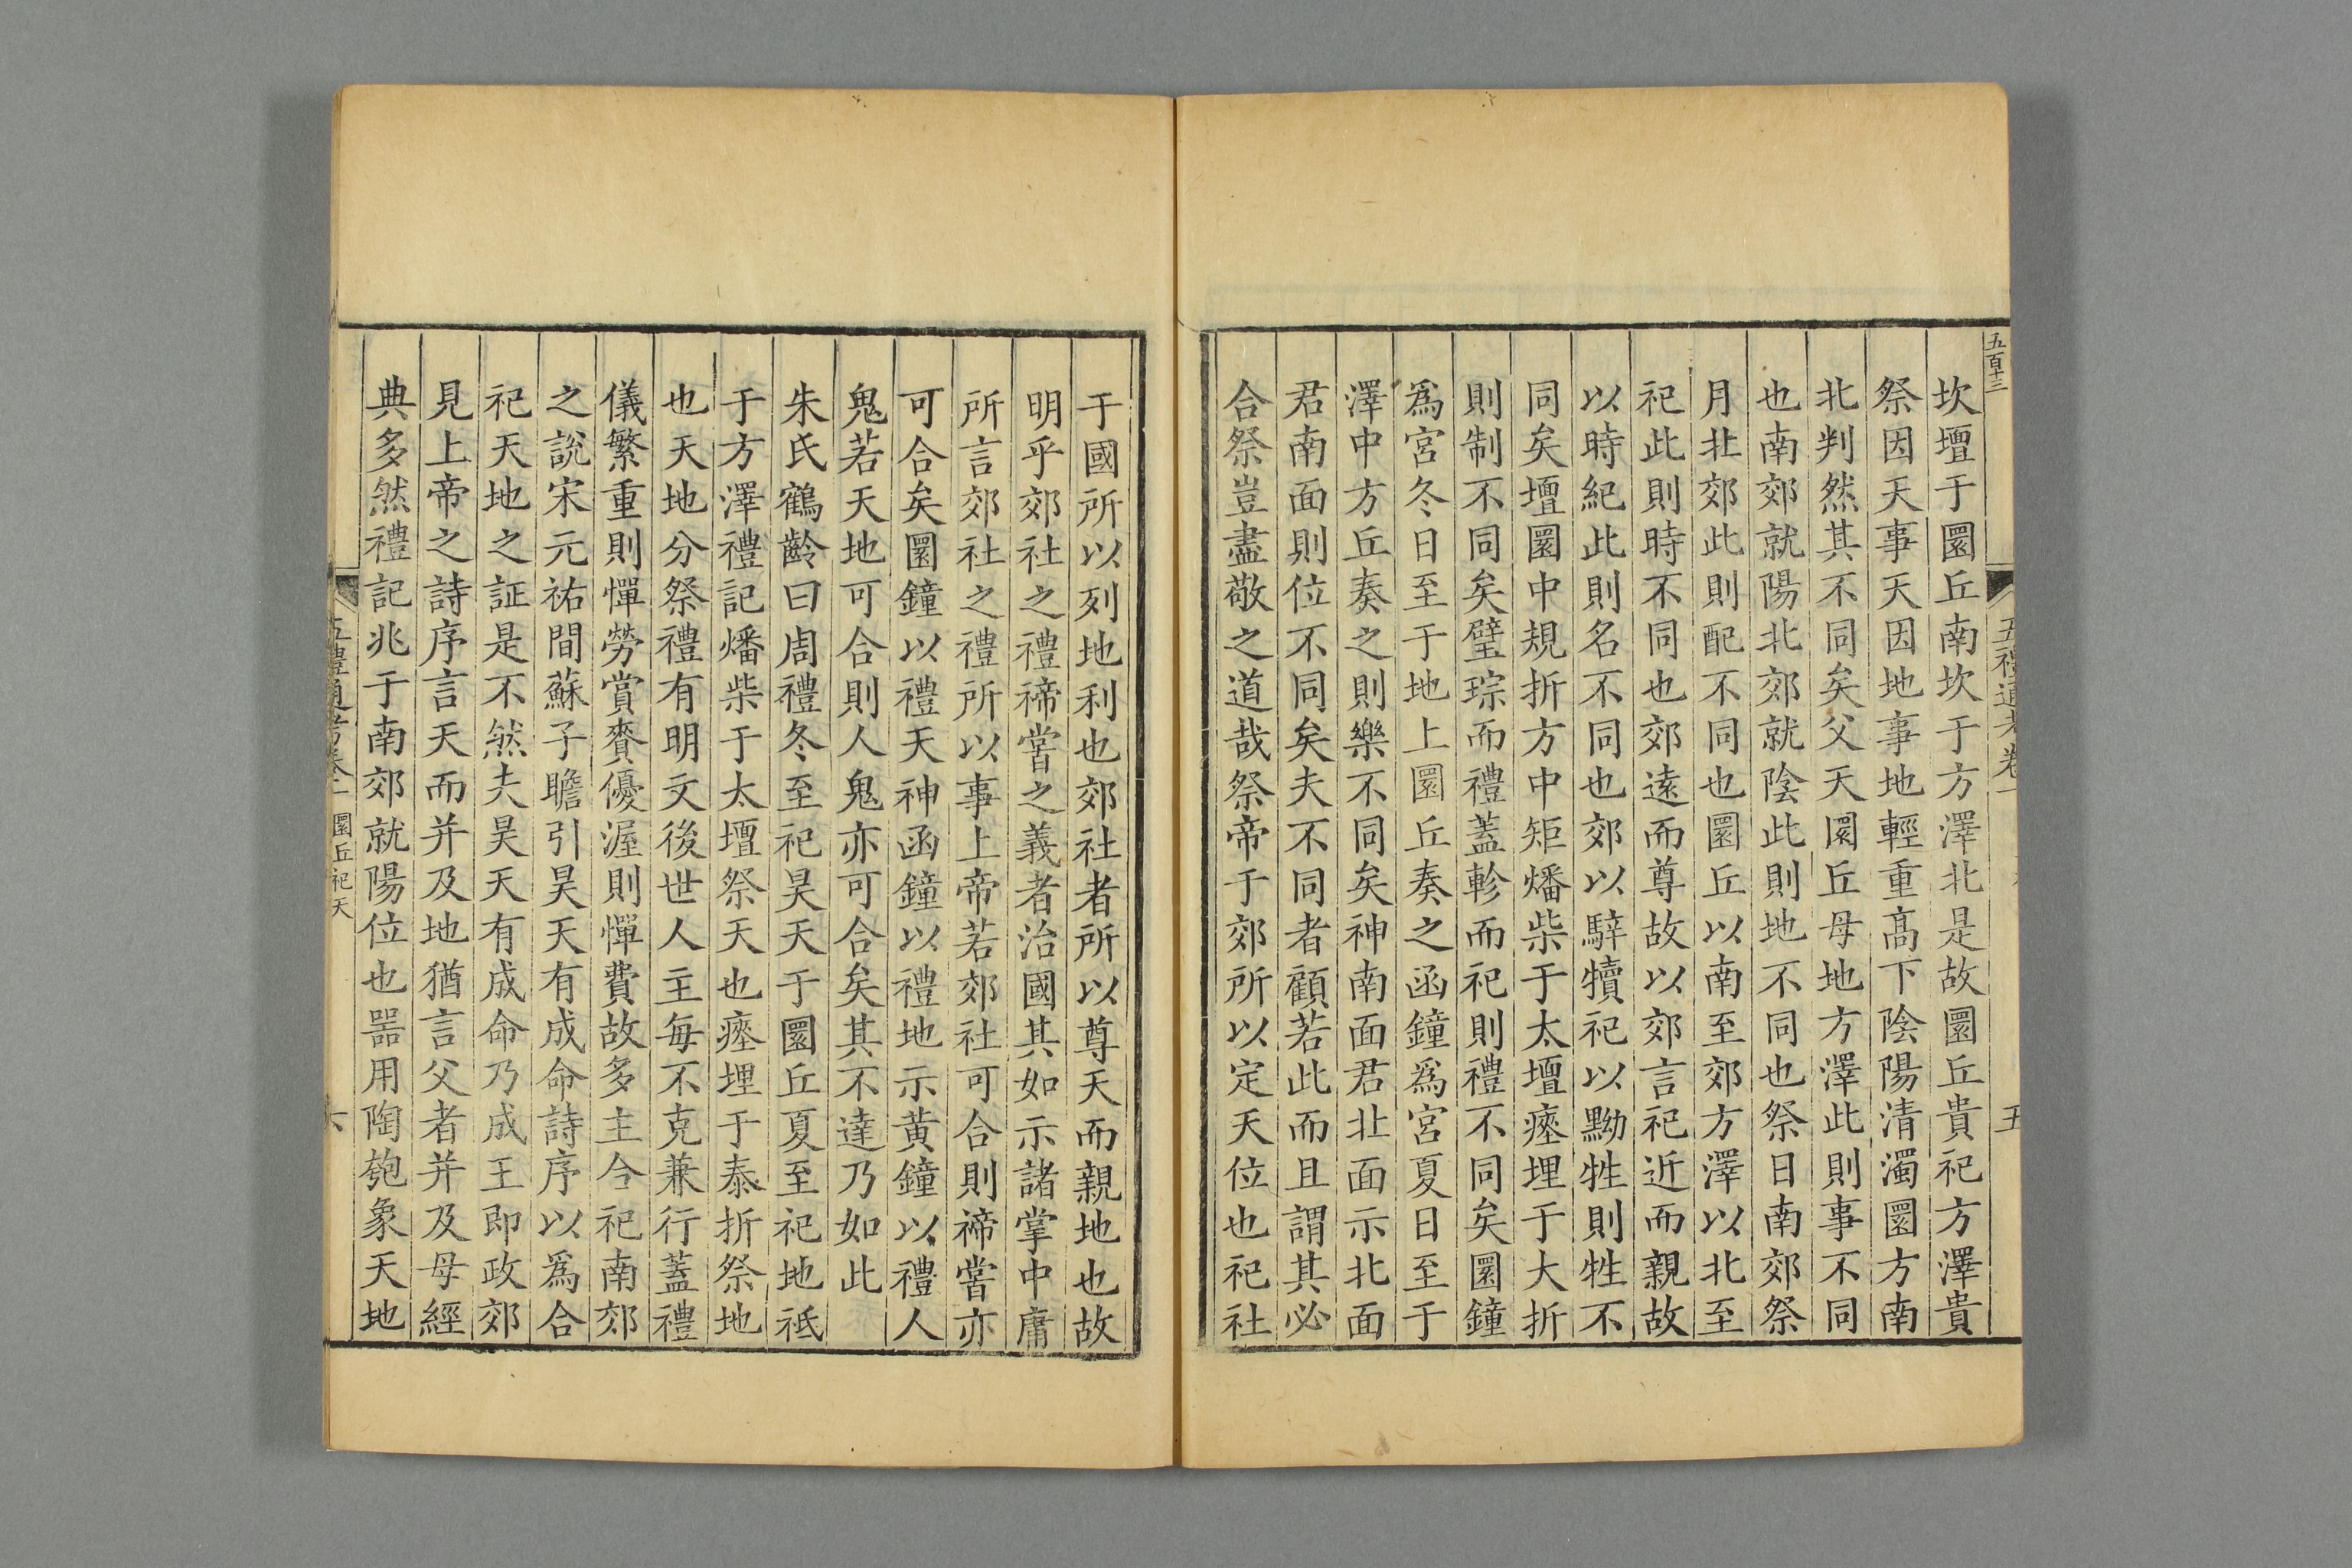 五百十三
五禮通考卷一
五
坎壇于圜丘南坎于方澤北是故圜丘貴祀方澤貴
祭因天事天因地事地輕重高下陰陽清濁圜方南
北判然其不同矣父天圜丘母地方澤此則事不同
也南郊就陽北郊就陰此則地不同也祭日南郊祭
月北郊此則配不同也圜丘以南至郊方澤以北至
祀此則時不同也郊遠而尊故以郊言祀近而親故
以時紀此則名不同也郊以騂犢祀以黝牲則牲不
同矣壇圜中規折方中矩燔柴于太壇瘞埋于大折
則制不同矣璧琮而禮蓋軫而祀則禮不同矣圜鐘
爲宮冬日至于地上圜丘奏之函鐘爲宮夏日至于
澤中方丘奏之則樂不同矣神南面君北面示北面
君南面則位不同矣夫不同者顧若此而且謂其必
合祭豈盡敬之道哉祭帝于郊所以定天位也祀社
于國所以列地利也郊社者所以尊天而親地也故
明乎郊社之禮禘嘗之義者治國其如示諸掌中庸
所言郊社之禮所以事上帝若郊社可合則禘嘗亦
可合矣圜鐘以禮天神函鐘以禮地示黃鐘以禮人
鬼若天地可合則人鬼亦可合矣其不達乃如此
朱氏鶴齡曰周禮冬至祀昊天于圜丘夏至祀地祗
于方澤禮記燔柴于太壇祭天也瘞埋于泰折祭地
也天地分祭禮有明文後世人主每不克兼行蓋禮
儀繁重則憚勞賞賚優渥則憚費故多主合祀南郊
之說宋元祐間蘇子瞻引昊天有成命詩序以爲合
祀天地之証是不然夫昊天有成命乃成王即政郊
見上帝之詩序言天而并及地猶言父者并及母經
典多然禮記兆于南郊就陽位也器用陶匏象天地
五禮通考卷一
圜丘祀天
六